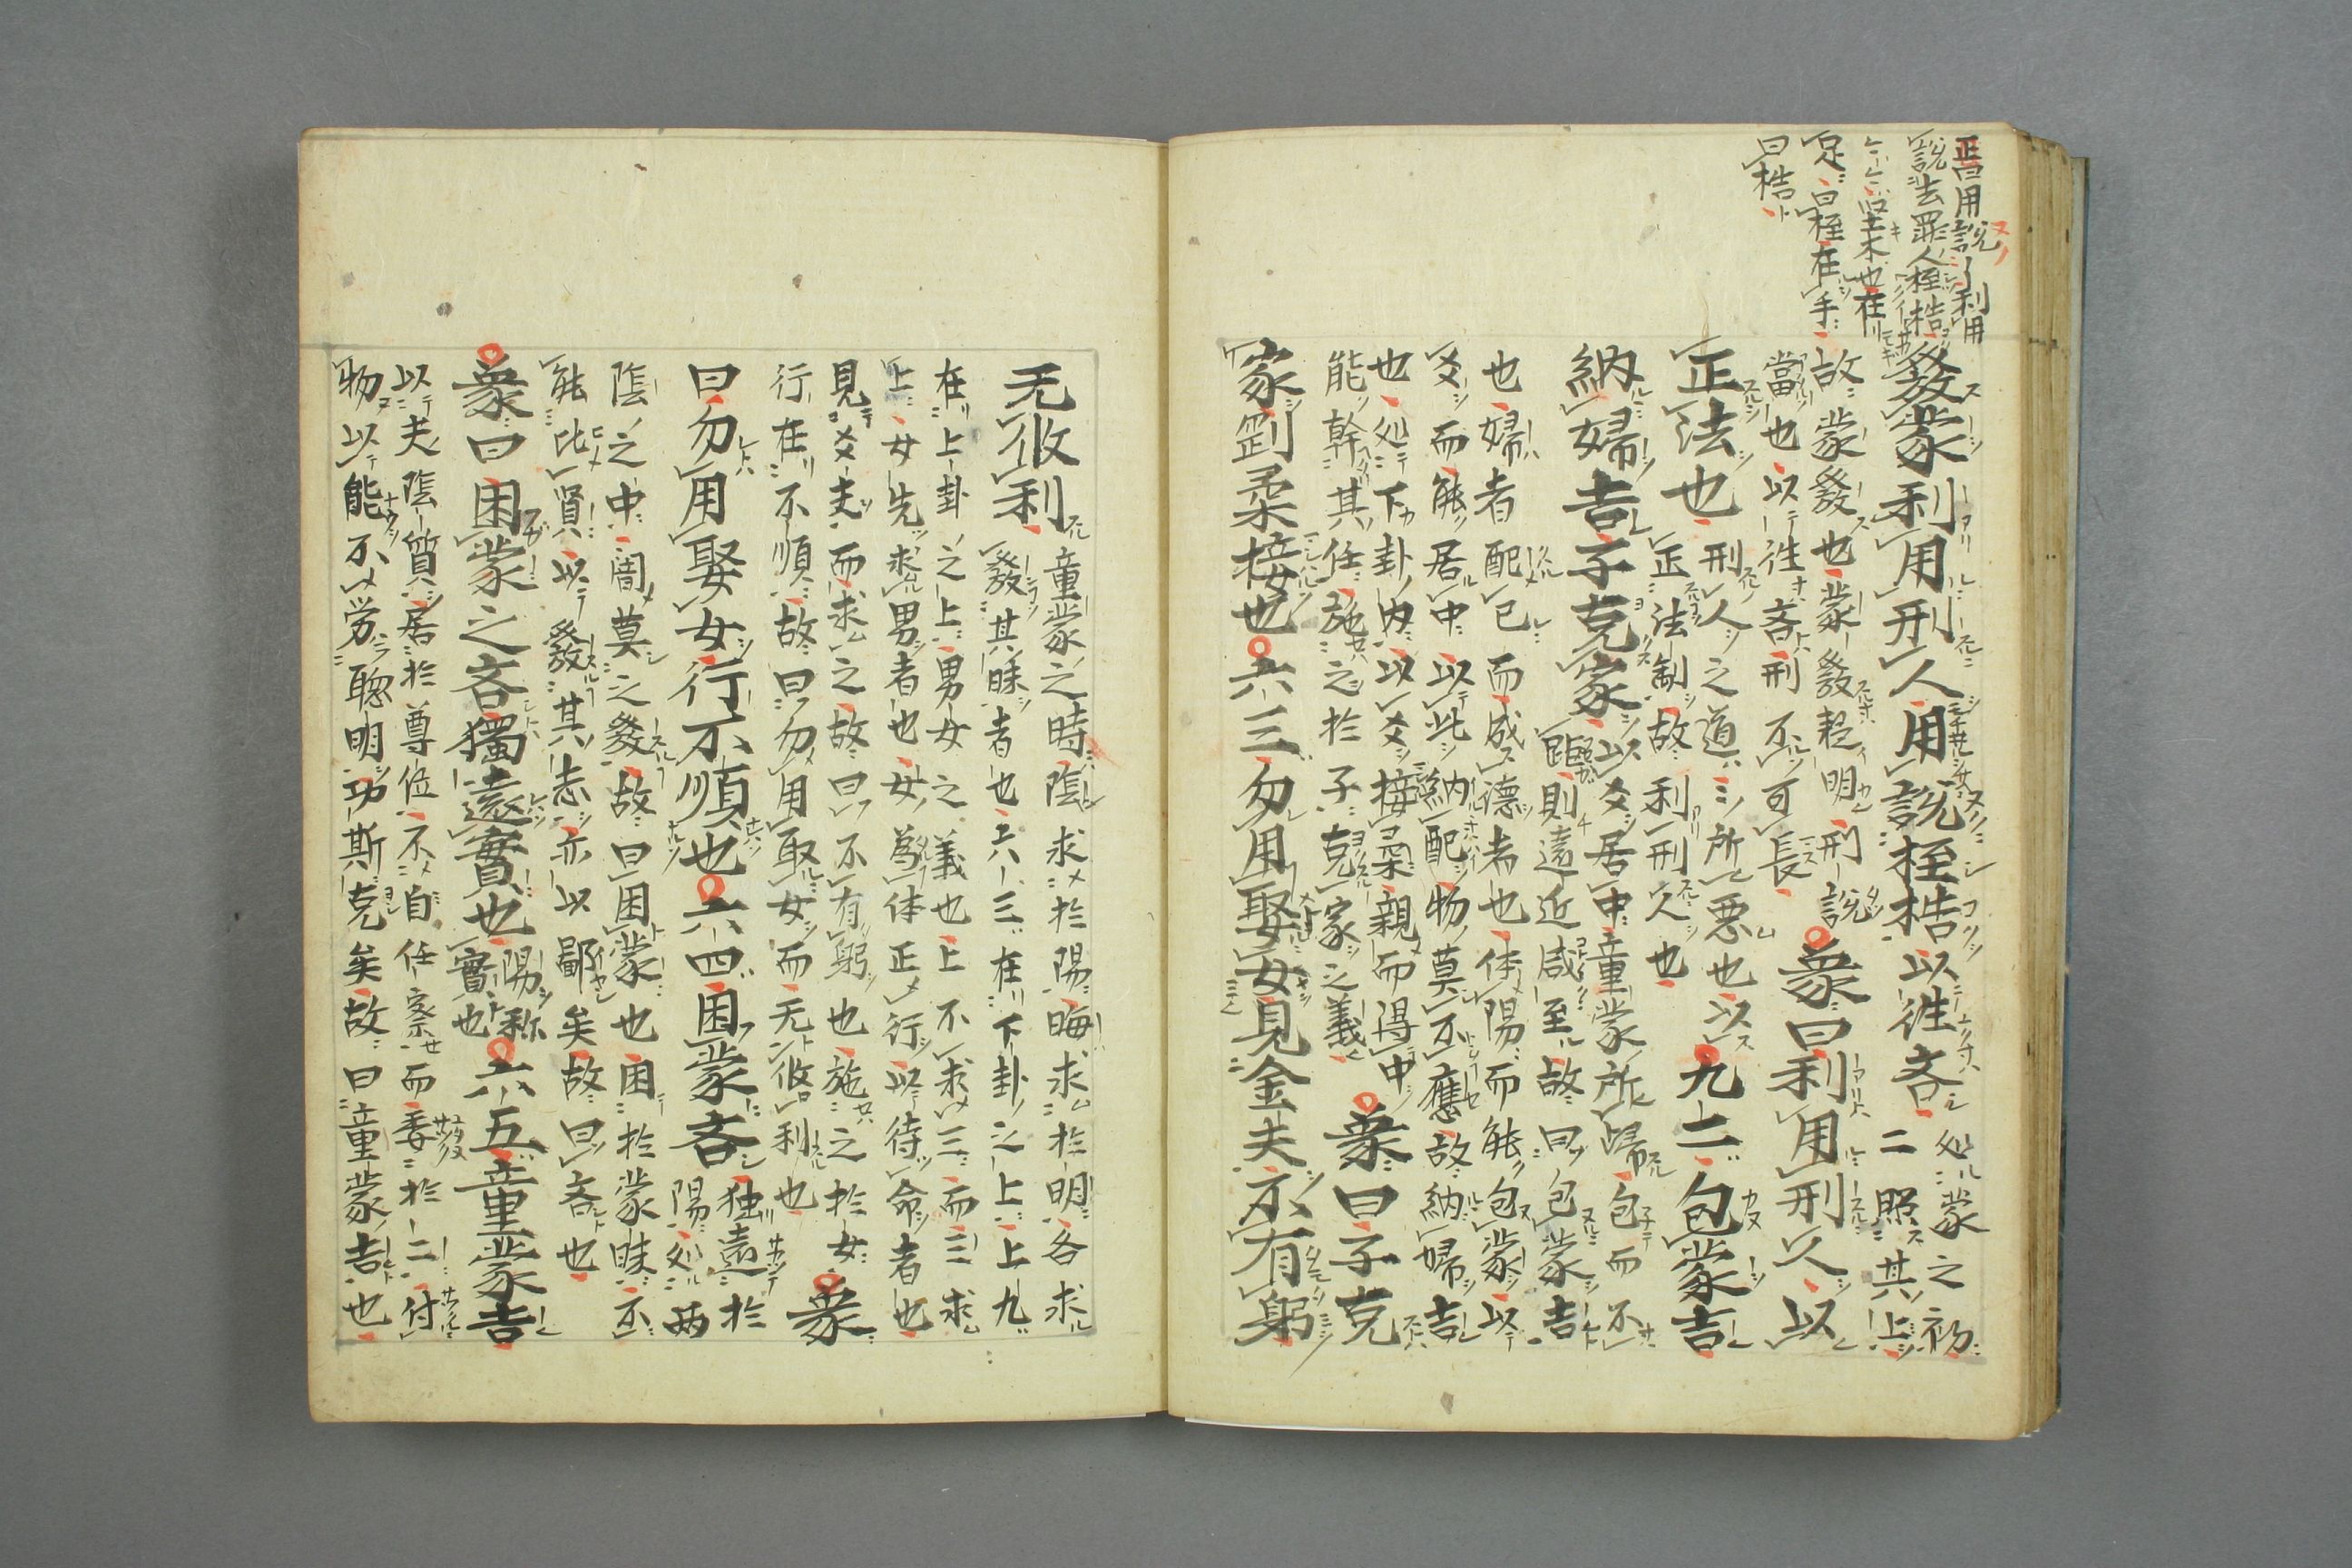 正曰用說ー利用
說去罪人桎梏
木也在
足曰桎在手
曰梏
發蒙利用刑人用說桎梏以往吝 処蒙之初
二照其上
故蒙發也蒙發起明刑說
當也以往吝刑不可長 象曰利用刑人以
正法也 刑人之道〻所惡也以
正法制故利刑人也 九二包蒙吉
納婦吉子克家 以爻居中童蒙所歸包而不
距則遠近咸至故曰包蒙吉
也婦者配已而成德者也体陽而能包蒙以
爻而能居中以此納配物莫不應故納婦吉
也処下卦内以爻接柔親而得中
能幹其任施之於子克家之義 象曰子克
家劉柔接也六三勿用娶女見金夫不有躬
无攸利 童蒙之時陰求於陽晦求於明各求
發其昧者也六三在下卦之上上九
在上卦之上男女之義也上不求三而三求
上女先求男者也女為体正行以待命者也
見爻夫而求之故曰不有躬也施之於女
行在不順故曰勿用取女而无攸利也 象
曰勿用娶女行不順也六四困蒙吝 独遠於
陽処両
陰之中闇莫之發故曰困蒙也困於蒙昧不
能比賢以發其志亦以鄙矣故曰吝也
象曰困蒙之吝獨遠實也 陽称
實也 六五童蒙吉
以夫陰質居於尊位不自任察而委於二付
物以能不労聡明功斯克矣故曰童蒙吉也